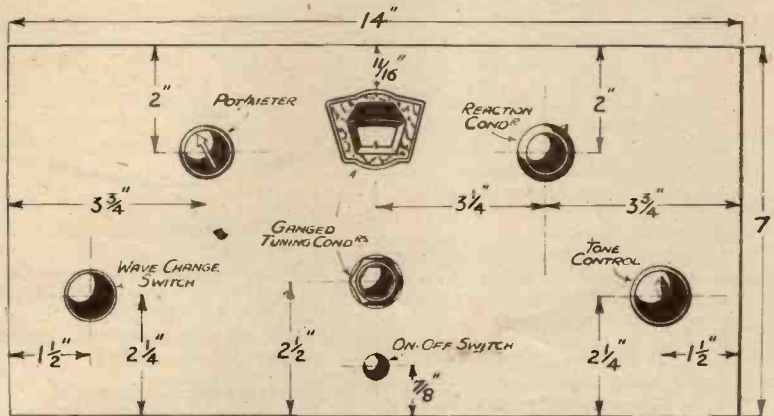 14"
11/16"
2"
POT/METER
REACTION
CONDR
2"
3 3/4"
3 1/4"
3 3/4"
7
GANGED
TUNING CONDRS
WAVE CHANGE
SWITCH
TONE
CONTROL
1 1/2"
2 1/4"
2 1/2"
ON-OFF SWITCH
7/8"
2 1/4"
1 1/2"